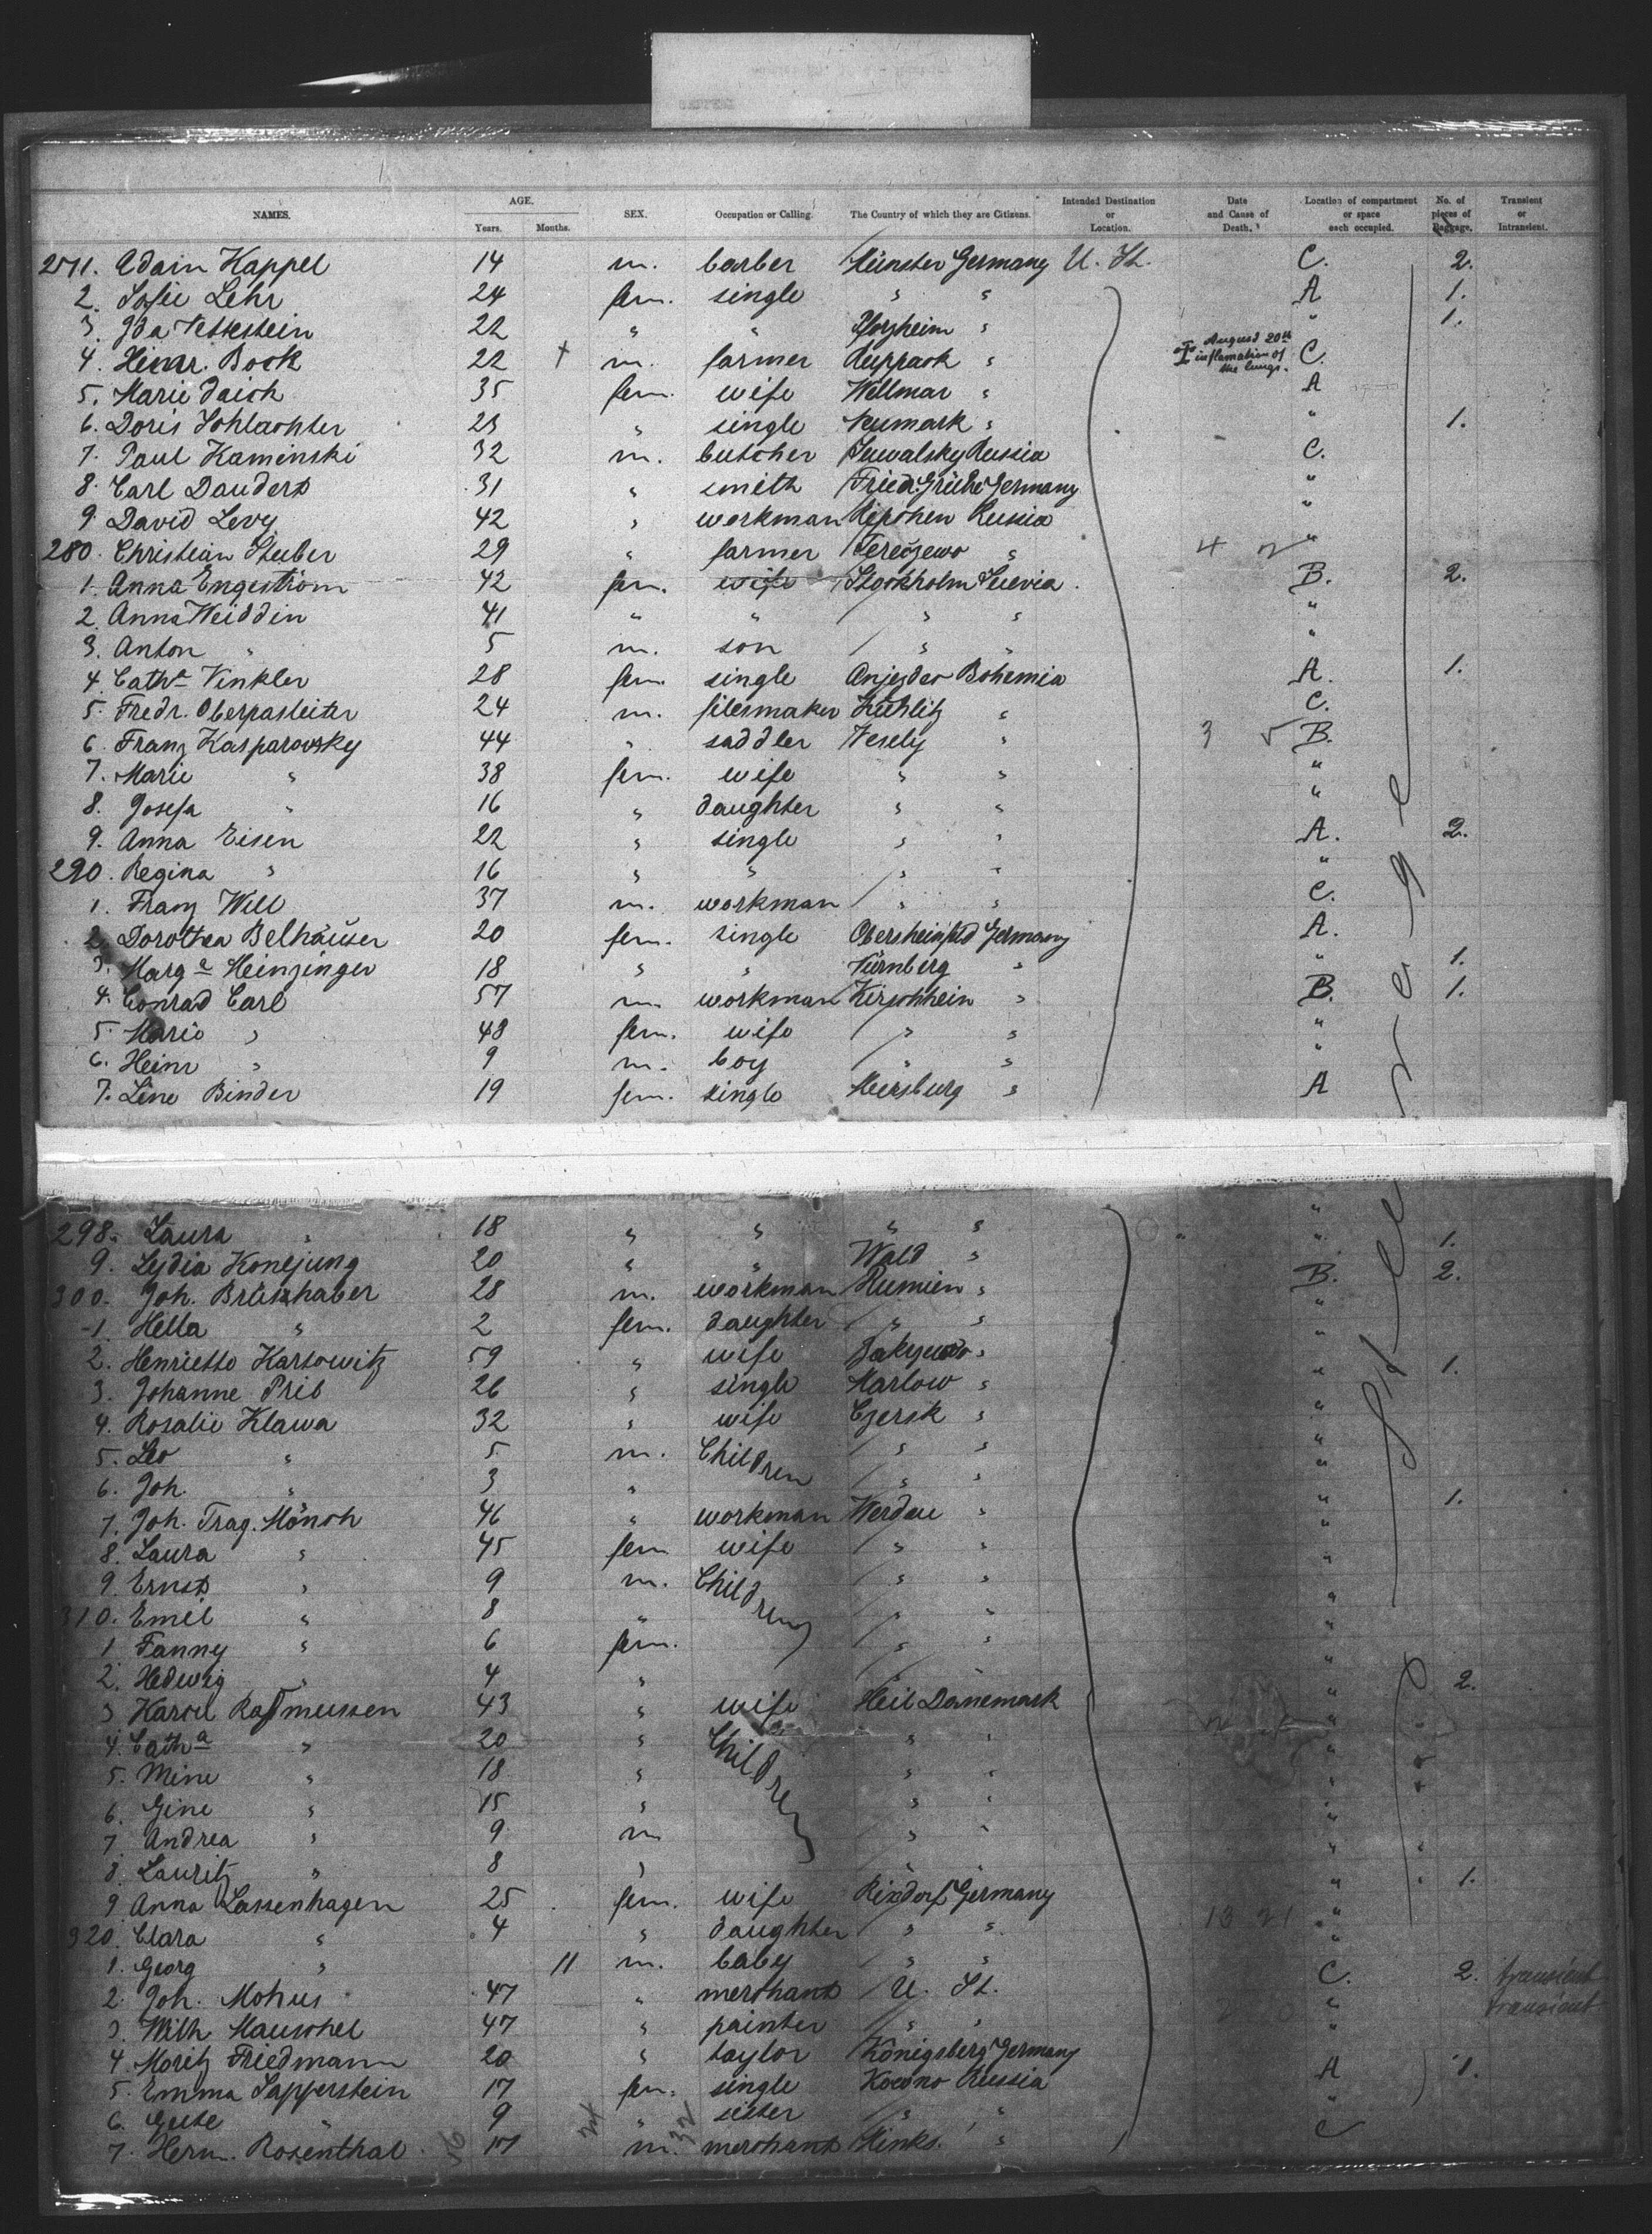 NAMES. AGE. Years. Months. SEX. Occupation or Calling. The Country of which they are Citizens. Intended Destination or Location. Date and Cause of Death. Location of compartment or space each occupied. No. of pieces of Baggage. Transient or Intransient.
271. Adam Kappel 14 m. barber Münster Germany U. St. C. 2.
2. Sofie Lehr 24 fem. single " " A 1.
3. Ida 22 " " Pforzheim " " 1.
4. Heinr. Bock 22 + m. farmer " August 20th inflamation of the lungs. C.
5. Marie Daich 35 fem. wife Willmar " A
6. Doris Schlachter 23 " single Neumark " " 1.
7. Paul Kaminski 32 m. butcher Suwalsky Russia C.
8. Carl Dauderts 31 " smith Germany "
9. David Levy 42 " workman Russia "
280. Christian Stuber 29 " farmer " "
1. Anna Engeström 42 fem. wife Stockholm Suevia B. 2.
2. Anna Weiddin 41 " " " " "
3. Anton " 5 m. son " " "
4. Catha Vinkler 28 fem. single Bohemia A. 1.
5. Fredr. Oberparleiter 24 m. filesmaker " C.
6. Franz Kasparovsky 44 " saddler Wesely " 3 B.
7. Marie " 38 fem. wife " " "
8. Josefa " 16 " daughter " " "
9. Anna Eisen 22 " single " " A. 2.
290. Regina " 16 " " " " "
1. Franz Will 37 m. workman " " C.
2. Dorothea Belhäuser 20 fem. single Germany A.
3. Marga Heinzinger 18 " " Nürnberg " " 1.
4. Conrad Carl 57 m. workman Kirchhein " B. 1.
5. Marie " 48 fem. wife " " "
6. Heinr " 9 m. boy " " "
7. Line Binder 19 fem. single Meersburg " A
298. Laura " 18 " " " " "
9. Lydia Konejung 20 " " Wald " " 1.
300. Joh. 28 m. workman " B. 2.
1. Hella " 2 fem. daughter " " "
2. Henriette Kartowitz 59 " wife " "
3. Johanne Prib 26 " single Marlow " " 1.
4. Rosalie Klawa 32 " wife Czersk " "
5. Leo " 5 m. Children " " "
6. Joh. " 3 " " " "
7. Joh. Trag. Mönch 46 " workman Werdau " " 1.
8. Laura " 45 fem wife " " "
9. Ernst " 9 m. Children " " "
310. Emil " 8 " " " "
1. Fanny " 6 fem. " " "
2. Hedwig " 4 " " " "
3 Karoel Rasmussen 43 " wife Heil Danemark " 2.
4. Catha " 20 " Children " " "
5. Mine " 18 " " " "
6. Gine " 15 " " " "
7. Andrea " 9 m " " "
8. Lauritz " 8 " " " "
9 Anna Lassenhagen 25 fem. wife Rixdorf Germany " 1.
320. Clara " 4 " daughter " " "
1. Georg " 11 m. baby " " "
2. Joh. Mohus 47 " merchant U. St. C. 2. transient
3. Wilh Mauschel 47 " painter " " " transient
4. Moritz Friedmann 20 " taylor Königsberg Germany "
5. Emma Sapperstein 17 fem. single Kowno Russia A 1.
6. Geite " 9 " sister " " "
7. Herm. Rosenthal 17 m. merchant Minks. " C